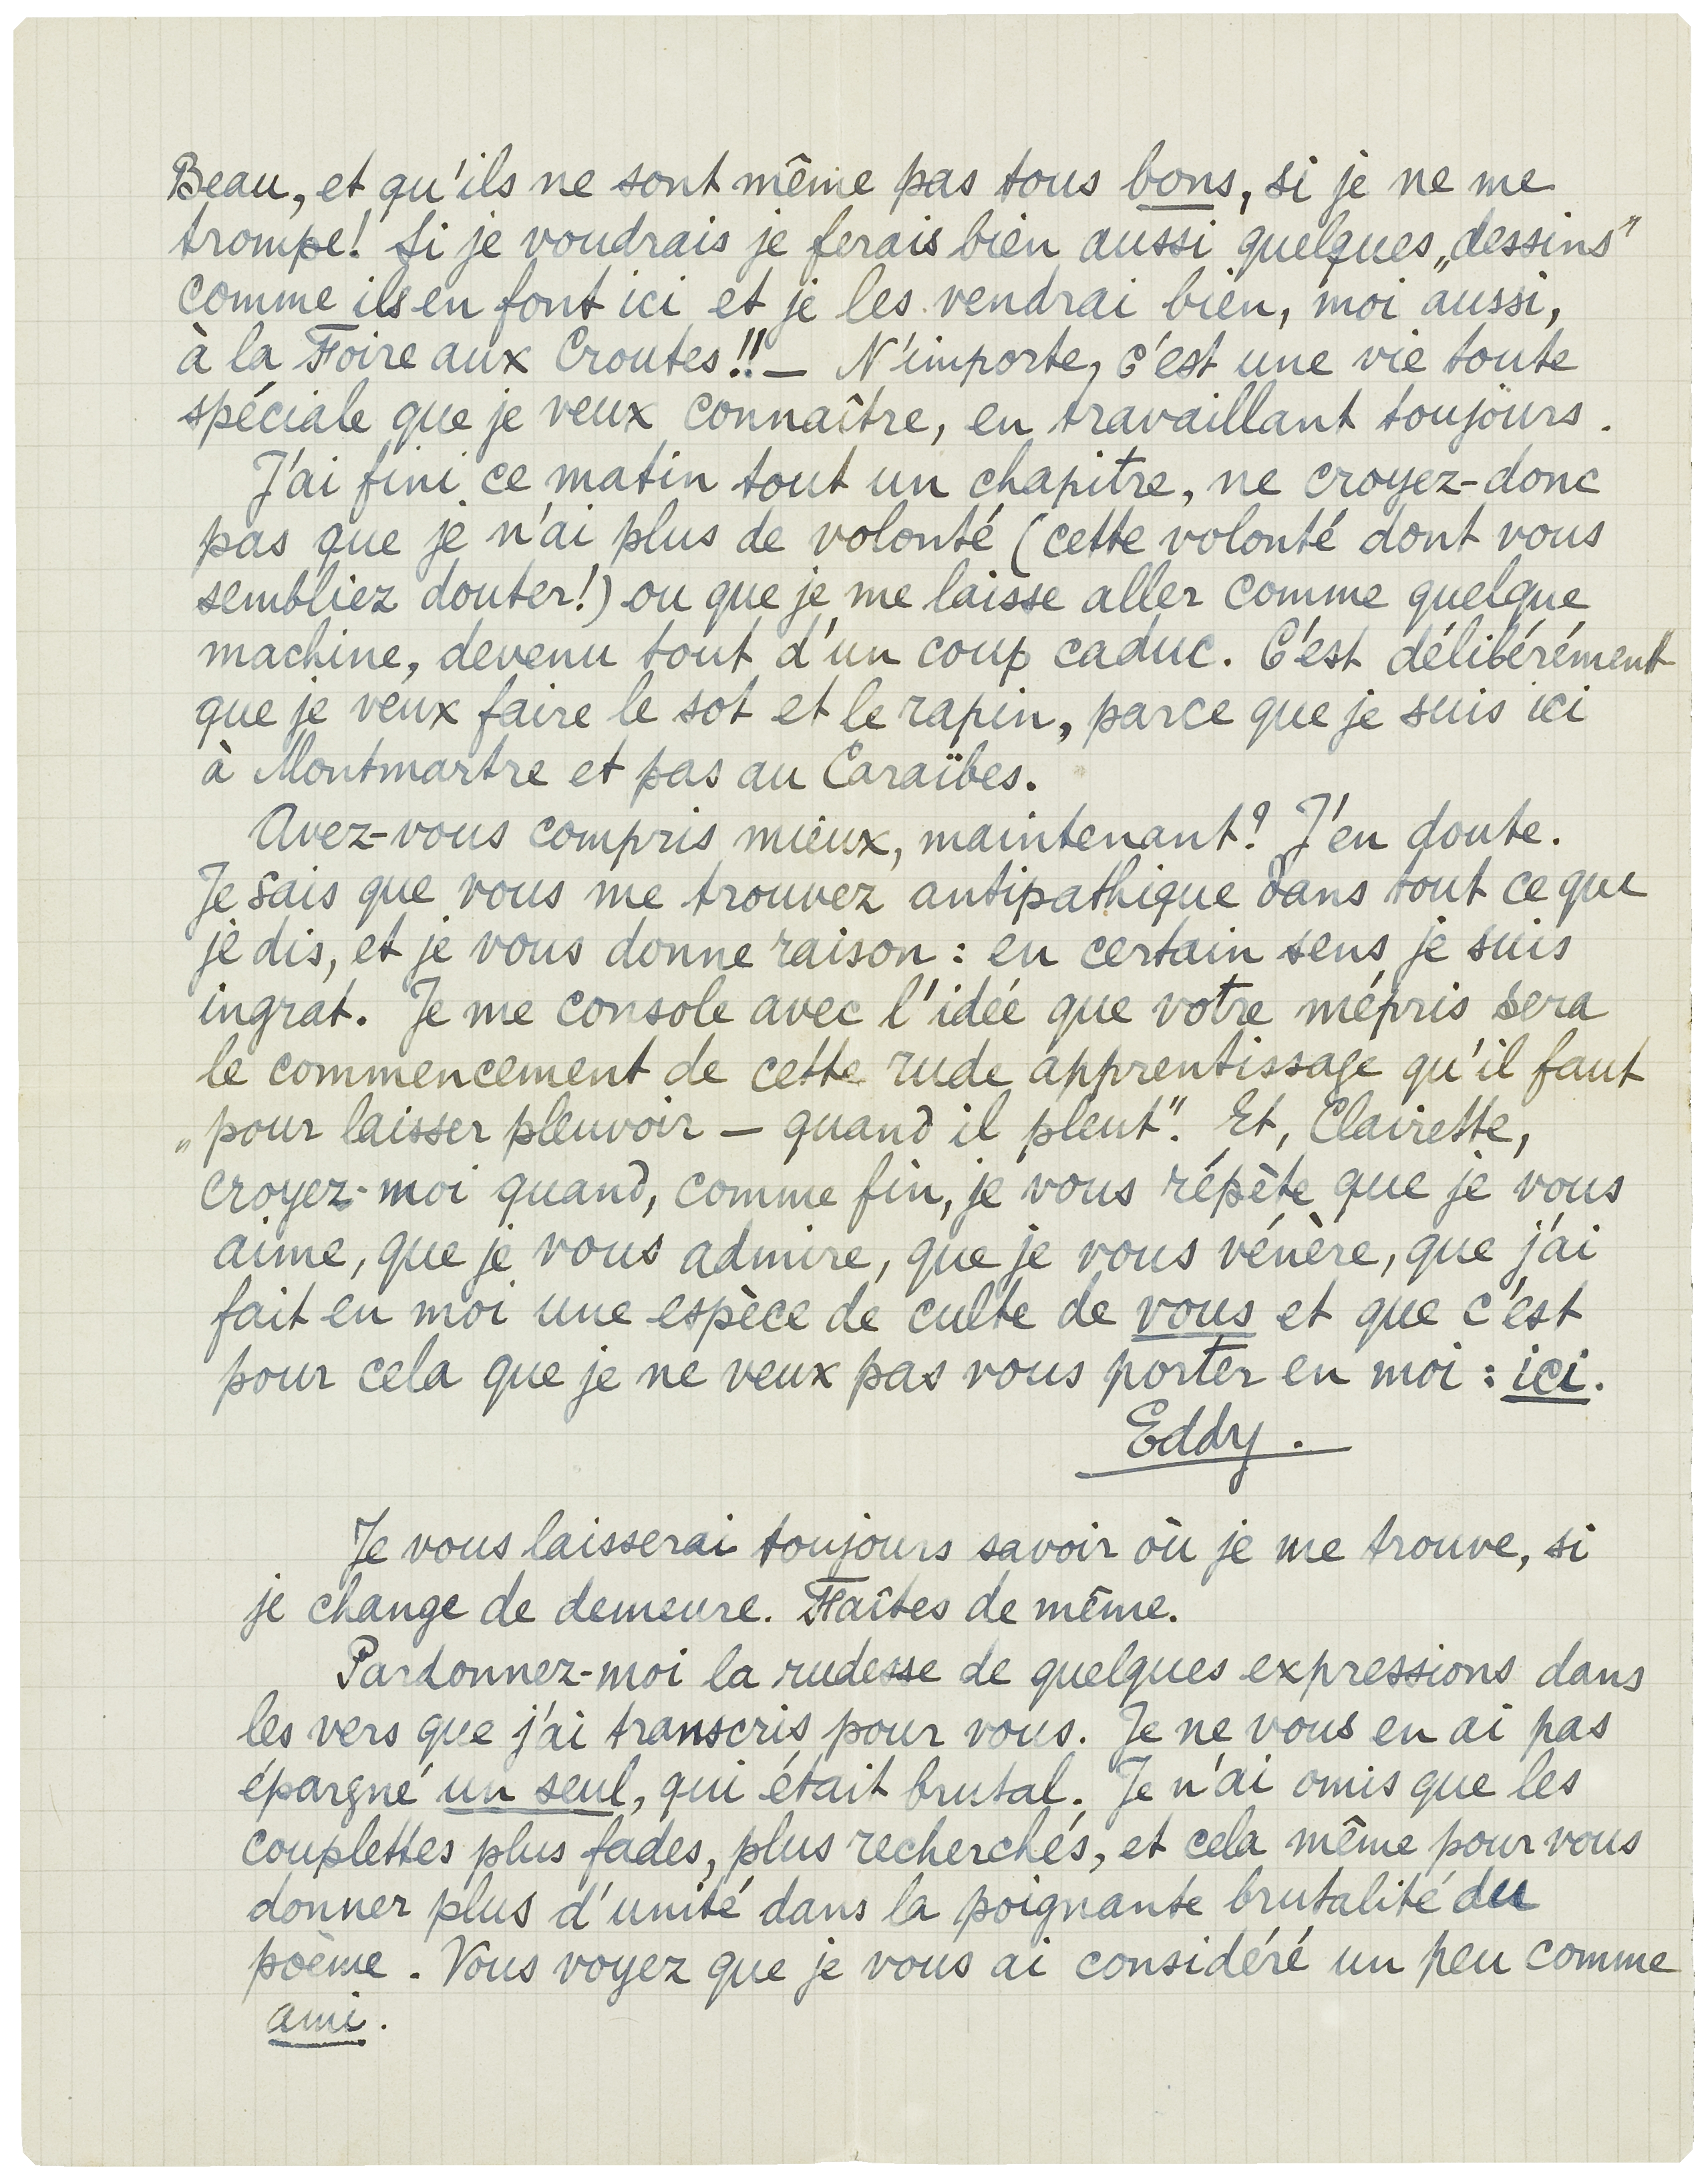 Beau, et qu'ils ne sont même pas tous bons, si je ne me
trompe! Si je voudrais je ferais bien aussi quelques „dessins"
comme ils en font ici et je les vendrai bien, moi aussi,
à la Foire aux Croutes!! — N'importe, c'est une vie toute
spéciale que je veux connaître, en travaillant toujours.
J'ai fini ce matin tout un chapitre, ne croyez-donc
pas que je n'ai plus de volonté (cette volonté dont vous
sembliez douter!) ou que je me laisse aller comme quelque
machine, devenu tout d'un coup caduc. C'est délibérément
que je veux faire le sot et le rapin, parce que je suis ici
à Montmartre et pas au Caraïbes.
Avez-vous compris mieux, maintenant? J'en doute.
Je sais que vous me trouvez antipathique dans tout ce que
je dis, et je vous donne raison: en certain sens je suis
ingrat. Je me console avec l'idée que votre mépris sera
le commencement de cette rude apprentissage qu'il faut
„pour laisser pleuvoir — quand il pleut". Et, Clairette,
croyez-moi quand, comme fin, je vous répète que je vous
aime, que je vous admire, que je vous vénère, que j'ai
fait en moi une espèce de culte de vous et que c'est
pour cela que je ne veux pas vous porter en moi: ici.
Eddy.
Je vous laisserai toujours savoir où je me trouve, si
je change de demeure. Faîtes de même.
Pardonnez-moi la rudesse de quelques expressions dans
les vers que j'ai transcris pour vous. Je ne vous en ai pas
épargné un seul, qui était brutal. Je n'ai omis que les
couplettes plus fades, plus recherchés, et cela même pour vous
donner plus d'unité dans la poignante brutalité du
poème. Vous voyez que je vous ai considéré un peu comme
ami.